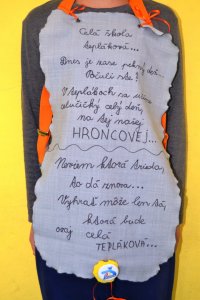 Celá škola
tepláková...
Dnes je zase pekný deň...
Počuli ste?
V teplákoch sa učíme
celučičký celý deň,
na tej našej
HRONCOVEJ...
Neviem ktorá trieda,
to dá znova...
Vyhrať môže len tá,
ktorá bude
celá
TEPLÁKOVA...